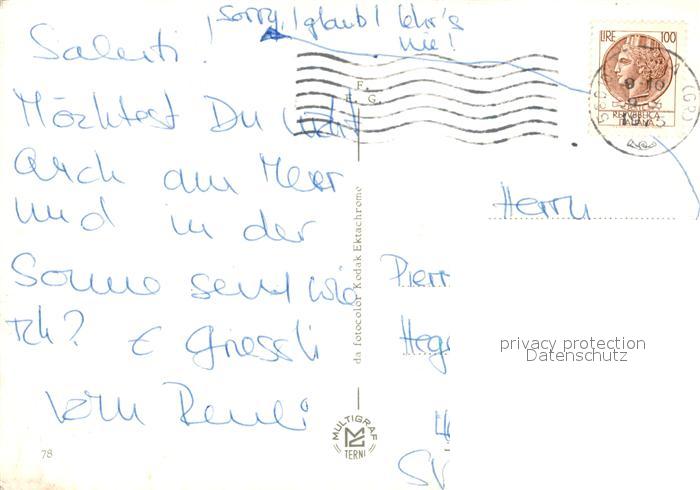 Sorry, I glaub I lehr's
nie!
Saluti!
Möchtest Du nicht
auch am Meer
und in der
Sonne send wie
ich? E Griessli
vom Reneli
78
F.
E. G.
da fotocolor Kodak Ektachrome
MULTIGRAF
TERNI
LIRE 100
REPVBBLICA
ITALIANA
Herrn
Pierr
Heg
privacy protection
Datenschutz